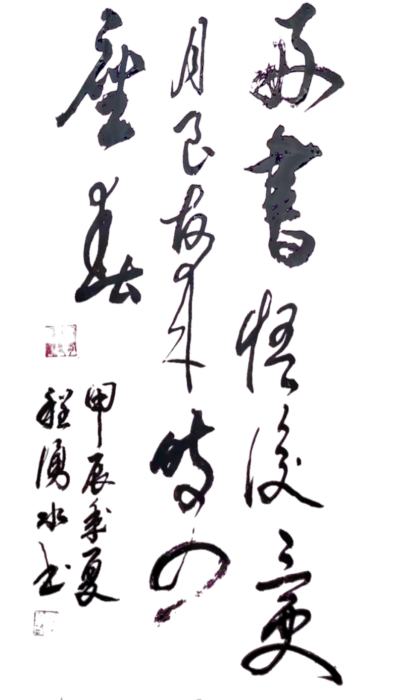 好書悟後三更
月良友来时四
座春
甲辰年夏
程湧水书